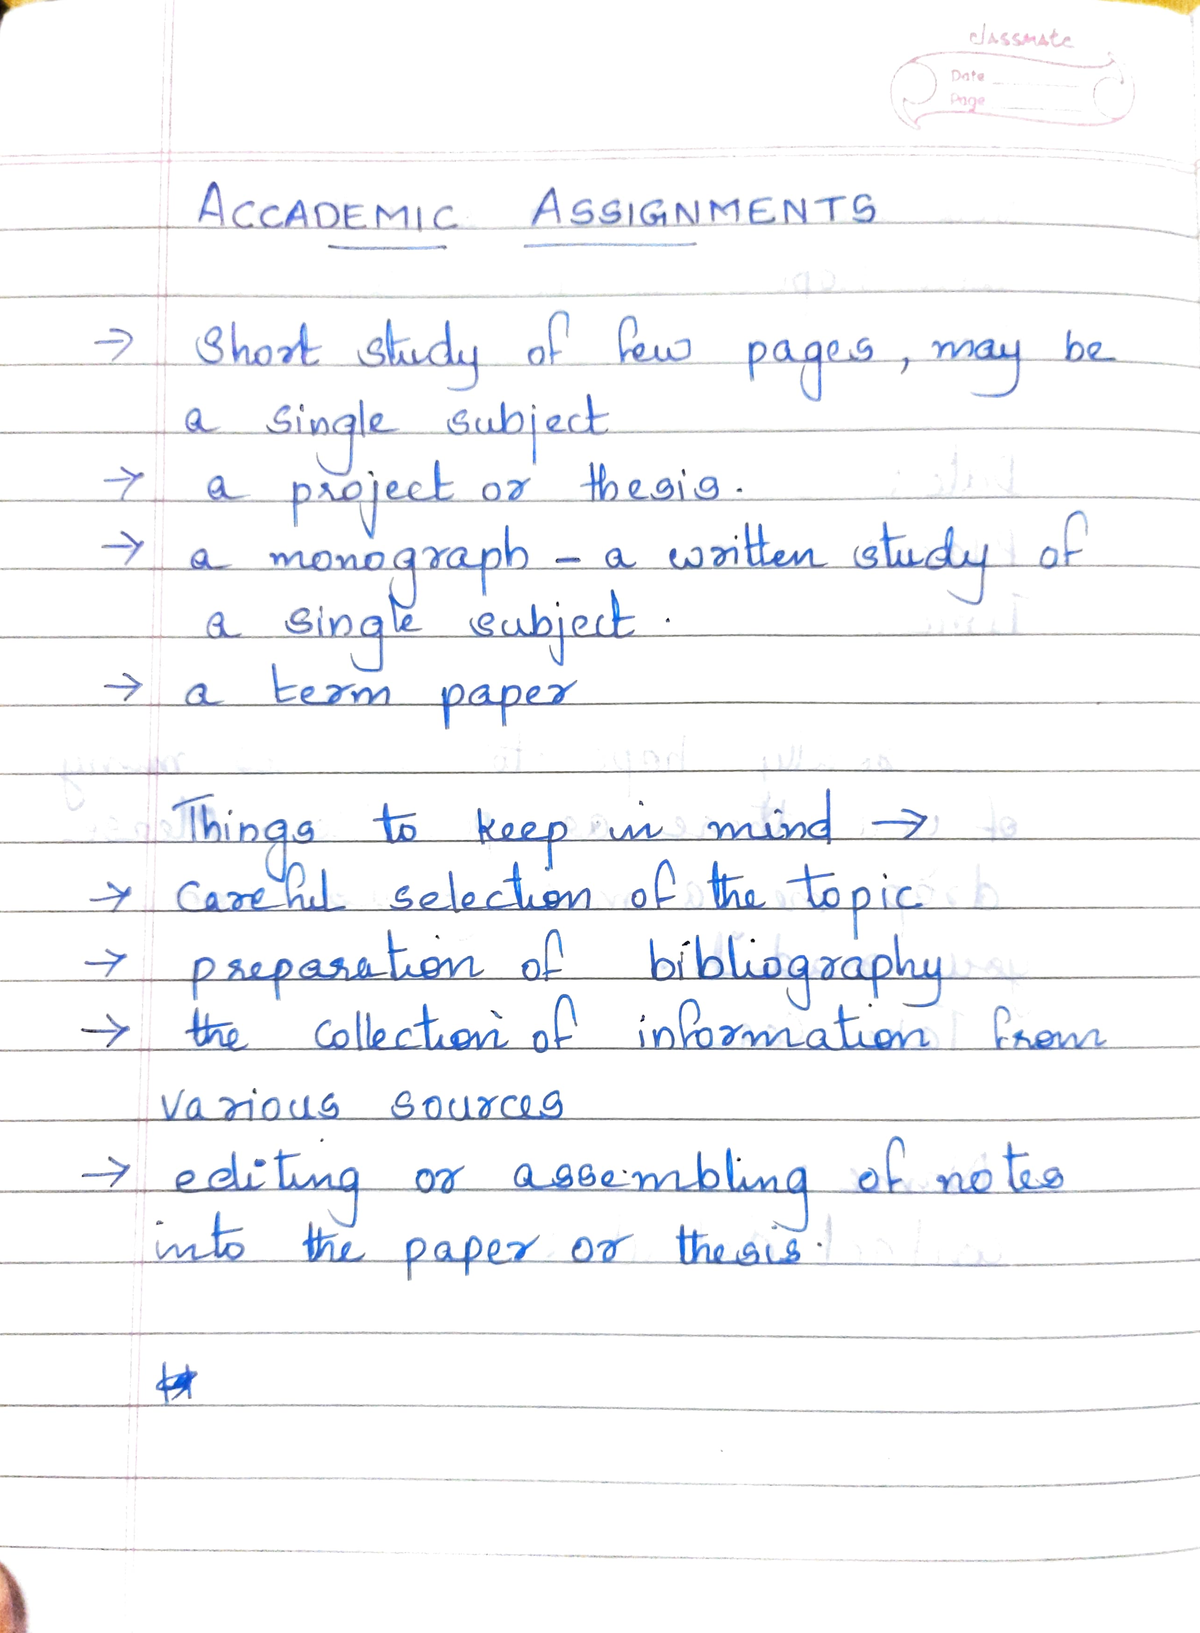 classmate
Date
Page
ACCADEMIC ASSIGNMENTS
→ Short study of few pages, may be
a single subject
→ a project or thesis.
→ a monograph - a written study of
a single subject.
→ a term paper
Things to keep in mind →
→ Careful selection of the topic
→ preparation of bibliography
→ the collection of information from
various sources
→ editing or assembling of notes
into the paper or thesis.